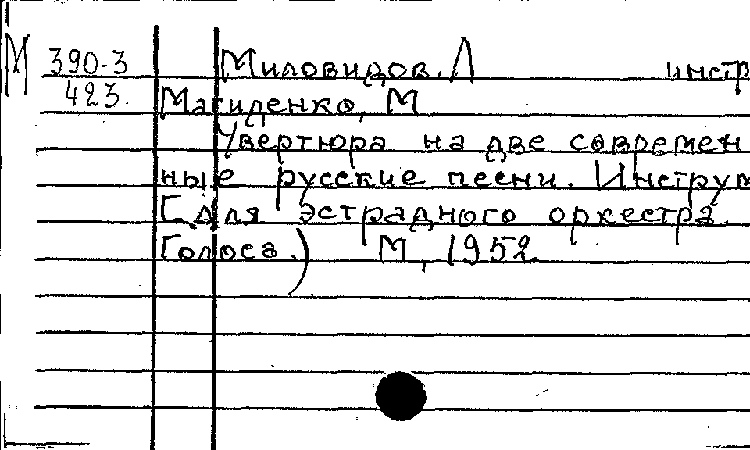 М 390-3 Миловидов. Л инстр
423. Магиденко, М
Увертюра на две современ
ные русские песни. Инструм
(для эстрадного оркестра.
Голоса.) М, 1952.